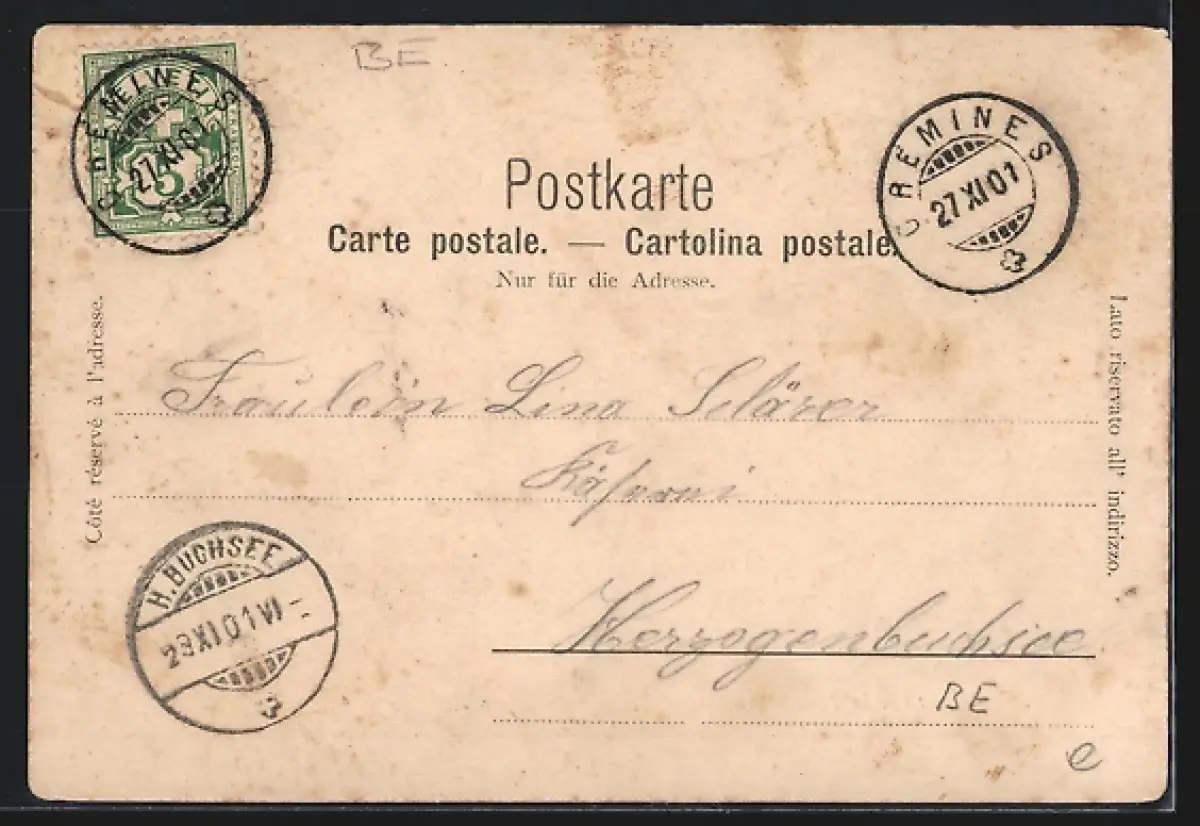 BE
5
27 XI 01
Postkarte
CREMINES
27 XI 01
Carte postale. — Cartolina postale.
Nur für die Adresse.
Côté réservé à l'adresse.
Lato riservato all' indirizzo.
Fräulein Lina
Käserei
Herzogenbuchsee
BE
e
H. BUCHSEE
XI 01 VI